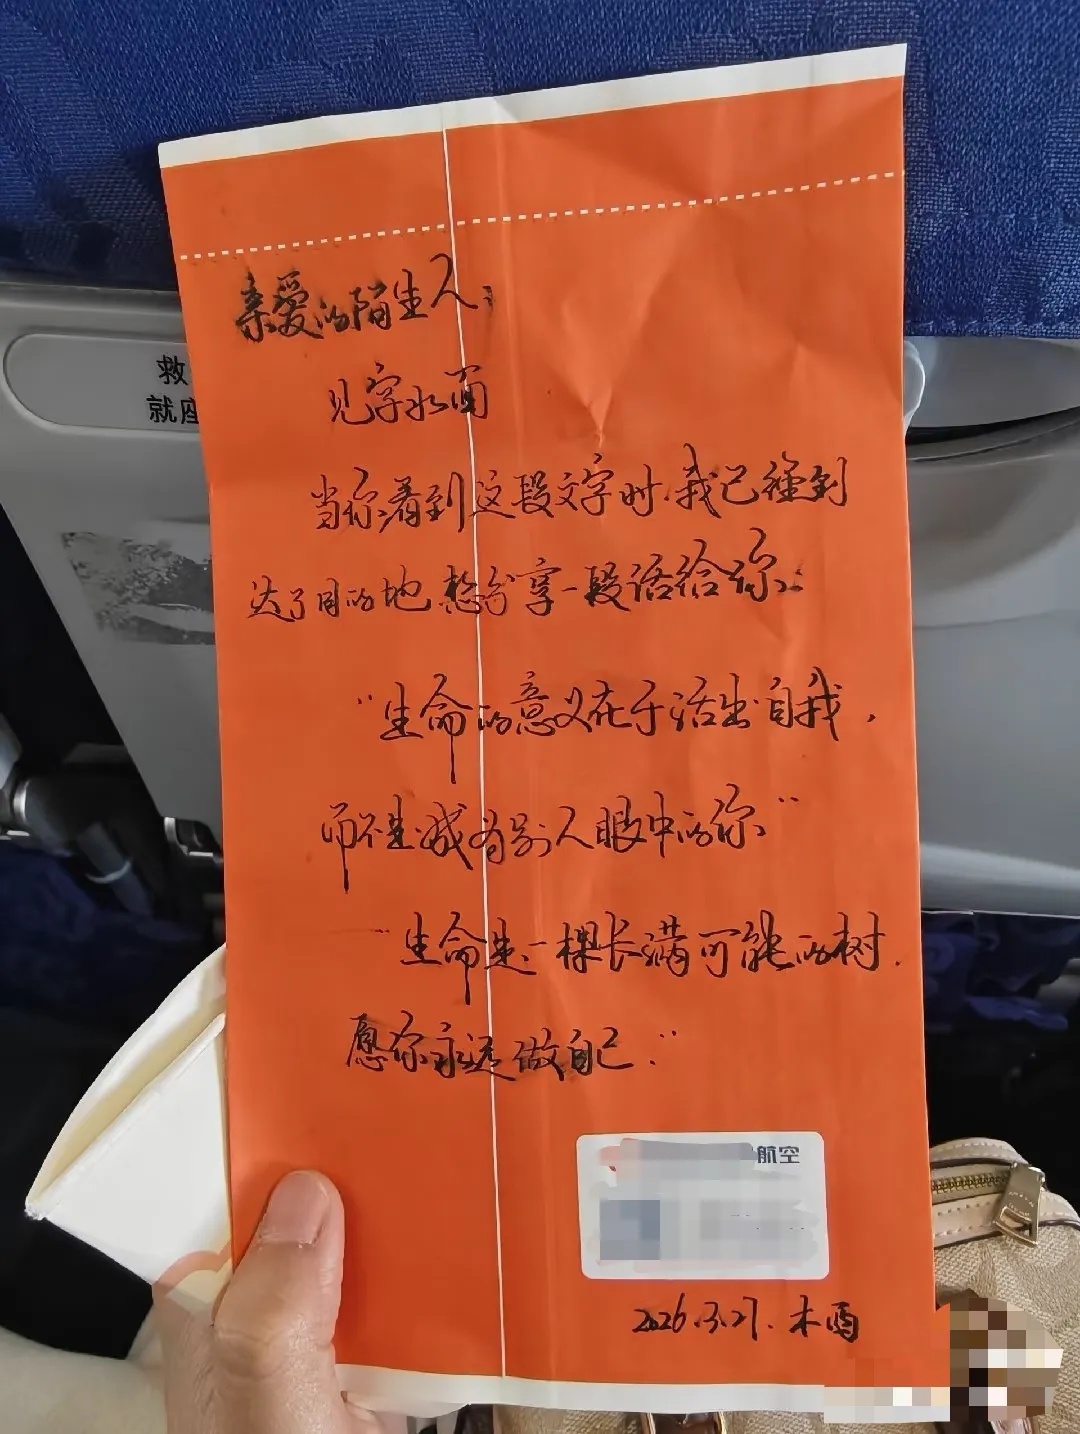 亲爱的陌生人:
见字如面
当你看到这段文字时.我已经到
达了目的地.想分享一段话给你.
“生命的意义在于活出自我,
而不是成为别人眼中的你”
“生命是一棵长满可能的树.
愿你永远做自己.”
航空
2026.3.27.木酉
救
就座